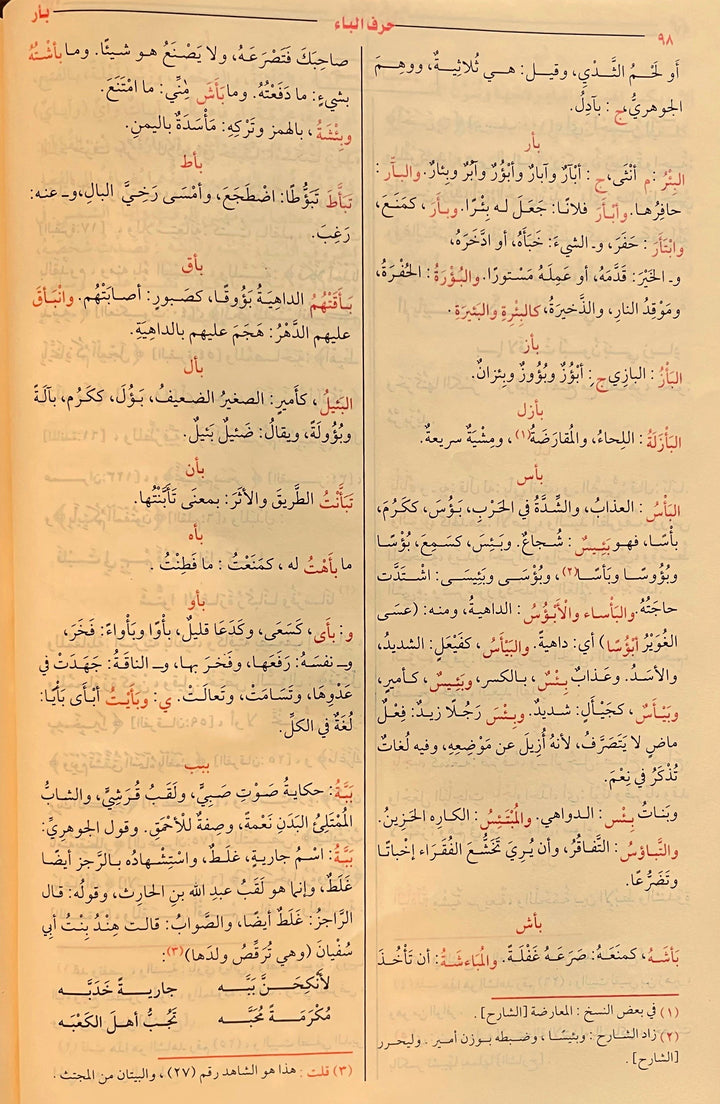 ٩٨
حرف الباء
بأر
أو لَحْمُ الثَّدْيِ، وقيل: هي ثُلاثِيةٌ، ووهِمَ
الجوهريُّ ج: بآدِلُ.
بأر
البِئْرُ: م أنْثَى، ج: أبْآرٌ وآبارٌ وأبْؤُرٌ وآبُرٌ وبِئارٌ. والبَأَّرُ:
حافِرُها. وأبْأَرَ فلانًا: جَعَلَ له بِئْرًا. وبَأَرَ، كمَنَعَ،
وابْتَأَرَ: حَفَرَ، و ـ الشيءَ: خَبَأَهُ، أو ادَّخَرَهُ،
و ـ الخَيْرَ: قَدَّمَهُ، أو عَمِلَهُ مَسْتورًا. والبُؤْرَةُ: الحُفْرَةُ،
ومَوْقِدُ النارِ، والذَّخيرَةُ، كالبِئْرةِ والبَئيرَةِ.
بأز
البَأْزُ: البازِي ج: أبْؤُزٌ وبُؤُوزٌ وبِئزانٌ.
بأزل
البَأْزَلَةُ: اللِحاءُ، والمُقارَضَةُ(١)، ومِشْيَةٌ سريعةٌ.
بأس
البَأْسُ: العذابُ، والشِّدَّةُ في الحَرْبِ، بَؤُسَ، ككَرُمَ،
بأْسًا، فهو بَئِيسٌ: شُجاعٌ. وبَئِسَ، كسَمِعَ، بُؤْسًا
وبُؤُوسًا وبَأْسًا(٢)، وبُؤْسَى وبَئِيسَى: اشْتَدَّت
حاجَتُهُ. والبَأساء والأَبْؤُسُ: الداهيةُ، ومنه: (عسَى
الغُوَيْرُ أبْؤُسًا) أي: داهيةً. والبَيْأَسُ، كفَيْعَلٍ: الشديدُ،
والأسَدُ. وعذابٌ بِئْسٌ، بالكسر، وبَئِيسٌ، كأميرٍ،
وبَيْأَسٌ، كجَيْأَلٍ: شديدٌ. وبِئْسَ رَجُلًا زيدٌ: فِعْلٌ
ماضٍ لا يَتَصَرَّفُ، لأنهُ أُزِيلَ عن مَوْضِعِهِ، وفيه لُغاتٌ
تُذْكَرُ في نِعْمَ.
وبَناتُ بِئْسٍ: الدواهي. والمُبْتَئِسُ: الكارِه الحَزِينُ.
والتَّباؤُسُ: التَّفاقُرُ، وأن يُرِيَ تَخَشُّعَ الفُقَراءِ إخْباتًا
وتَضَرُّعًا.
بأش
بَأَشَهُ، كمنَعَهُ: صَرَعَهُ غَفْلَةً. والمُبَاءَشَةُ: أن تَأْخُذَ
(١) في بعض النسخ: المعارضة [الشارح].
(٢) زاد الشارح: وبئيسًا، وضبطه بوزن أمير. وليحرر
[الشارح].
صاحِبَكَ فَتَصْرَعَهُ، ولا يَصْنَعُ هو شيئًا. وما بأشْتُهُ
بشيءٍ: ما دَفَعْتُهُ. وما بَأَشَ مِنِّي: ما امْتَنَعَ.
وبِئْشَةُ، بالهمز وتَرْكِهِ: مَأْسَدَةٌ باليمنِ.
بأط
تَبَأَّطَ تَبَؤُّطًا: اضْطَجَعَ، وأمْسَى رَخِيَّ البالِ، و ـ عنه:
رَغِبَ.
بأق
بَأَقَتْهُمُ الداهيَةُ بَؤُوقًا، كصَبورٍ: أصابَتْهُم. وانْبَأَقَ
عليهم الدَّهْرُ: هَجَمَ عليهم بالداهِيَةِ.
بأل
البَئِيلُ، كأميرٍ: الصغيرُ الضعيفُ، بَؤُلَ، ككَرُم، بآلةً
وبُؤُولَةً، ويقالُ: ضَئيلٌ بَئيلٌ.
بأن
تَبَأَّنْتُ الطَّريقَ والأثَرَ: بمعنَى تَأَبَّنْتُها.
بأه
ما بأهْتُ له، كمَنَعْتُ: ما فَطِنْتُ.
بأو
و: بأَى، كَسَعَى، وكدَعَا قليلٌ، بأْوًا وبَأْواءً: فَخَرَ،
و ـ نفسَهُ: رَفَعَها، وفَخَرَ بها، و ـ الناقةُ: جَهَدَتْ في
عَدْوِها، وتَسَامَتْ، وتَعالَتْ. ي: وبَأَيْتُ أبْأَى بَأْيًا:
لُغَةٌ في الكلِّ.
ببب
بَبَّةُ: حكايةُ صَوْتِ صَبِيٍّ، ولَقَبُ قُرَشِيٍّ، والشابُّ
المُمْتَلِئُ البَدَنِ نَعْمةً، وصِفةٌ للأحْمَقِ. وقول الجوهريِّ:
بَبَّةُ: اسْمُ جاريةٍ، غَلَطٌ، واسْتِشْهادُه بالرَّجز أيضًا
غَلَطٌ، وإنما هو لَقَبُ عبدِ الله بنِ الحارِثِ، وقولُه: قال
الرَّاجزُ: غَلَطٌ أيضًا، والصَّوابُ: قالت هِنْدُ بِنْتُ أبِي
سُفْيانَ (وهي تُرَقِّصُ ولدَها)(٣):
لأُنْكِحَنَّ بَبَّه جاريةً خِدَبَّه
مُكْرَمَةً مُحَبَّه تَجُبُّ أهلَ الكَعْبَه
(٣) قلت: هذا هو الشاهد رقم (٢٧)، والبيتان من المجتث.